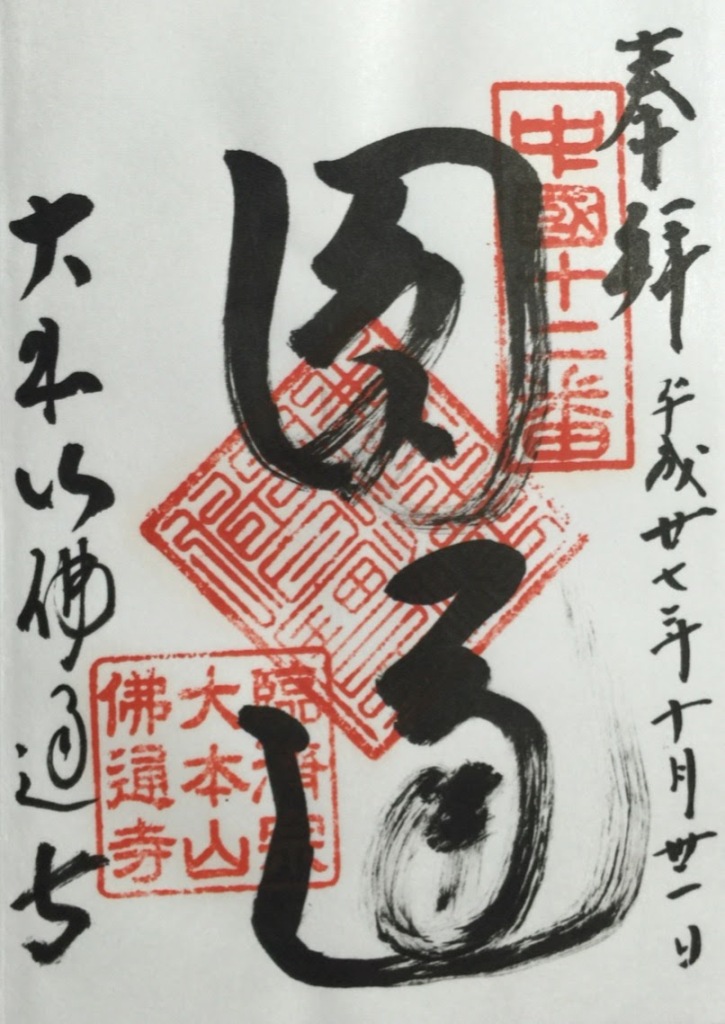 奉拜
平成廿七年十月卅一日
中國十二番
圓通
臨済宗
大本山
佛通寺
大本山佛通寺